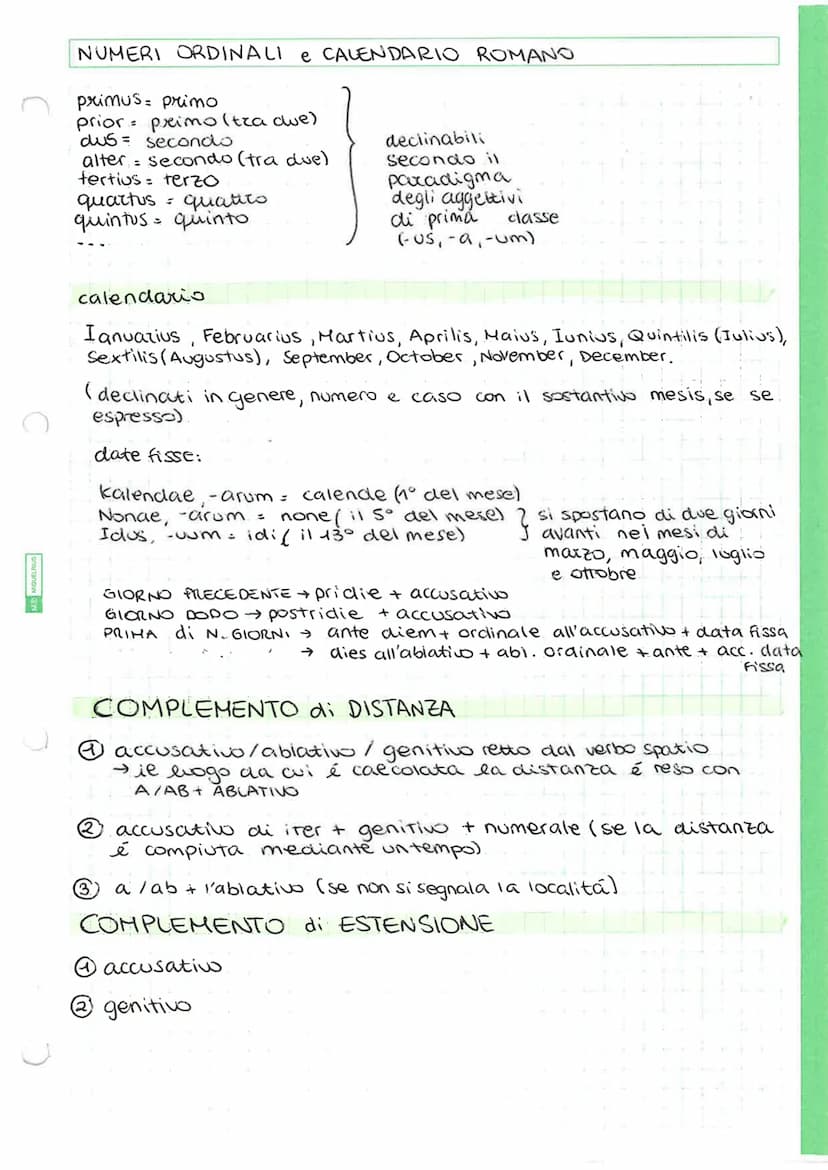 NUMERI ORDINALI e CALENDARIO ROMANO
primus = primo
prior = primo (tra due)
dus = secondo
alter = secondo (tra due)
tertius = terzo
quartus = quatto
quintus = quinto
...
declinabili
secondo il
paradigma
degli aggettivi
di prima classe
(-us, -a, -um)
calendario
Ianuarius, Februarius, Martius, Aprilis, Maius, Iunius, Quintilis (Iulius),
Sextilis (Augustus), September, October, November, December.
(declinati in genere, numero e caso con il sostantivo mesis, se se
espresso)
date fisse:
Kalendae, -arum = calende (1° del mese)
Nonae, -arum = none ( il 5° del mese)
Idus, -uum = idi ( il 13° del mese)
si spostano di due giorni
avanti nei mesi di
marzo, maggio, luglio
e ottobre
GIORNO PRECEDENTE → pridie + accusativo
GIORNO DOPO → postridie + accusativo
PRIMA di N. GIORNI → ante diem + ordinale all'accusativo + data fissa
" " " → dies all'ablativo + abl. ordinale + ante + acc. data
fissa
COMPLEMENTO di DISTANZA
① accusativo/ablativo / genitivo retto dal verbo spatio
→ il luogo da cui é calcolata la distanza é reso con
A/AB + ABLATIVO
② accusativo di iter + genitivo + numerale (se la distanza
é compiuta mediante un tempo)
③ a /ab + l'ablativo (se non si segnala la localitá)
COMPLEMENTO di ESTENSIONE
① accusativo
② genitivo
MIQUELRIUS